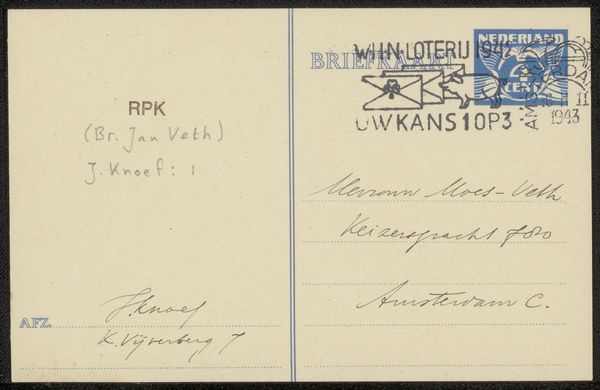 RPK
(Br. Jan Veth)
J. Knoef: 1
AFZ.
J. Knoef
K. Vijverberg 7
BRIEFKAART
NEDERLAND
CENT
WIJN-LOTERIJ 1942
UW KANS 1 OP 3
AMSTERDAM
11
1943
Mevrouw Moes-Veth
Keizersgracht
Amsterdam C.